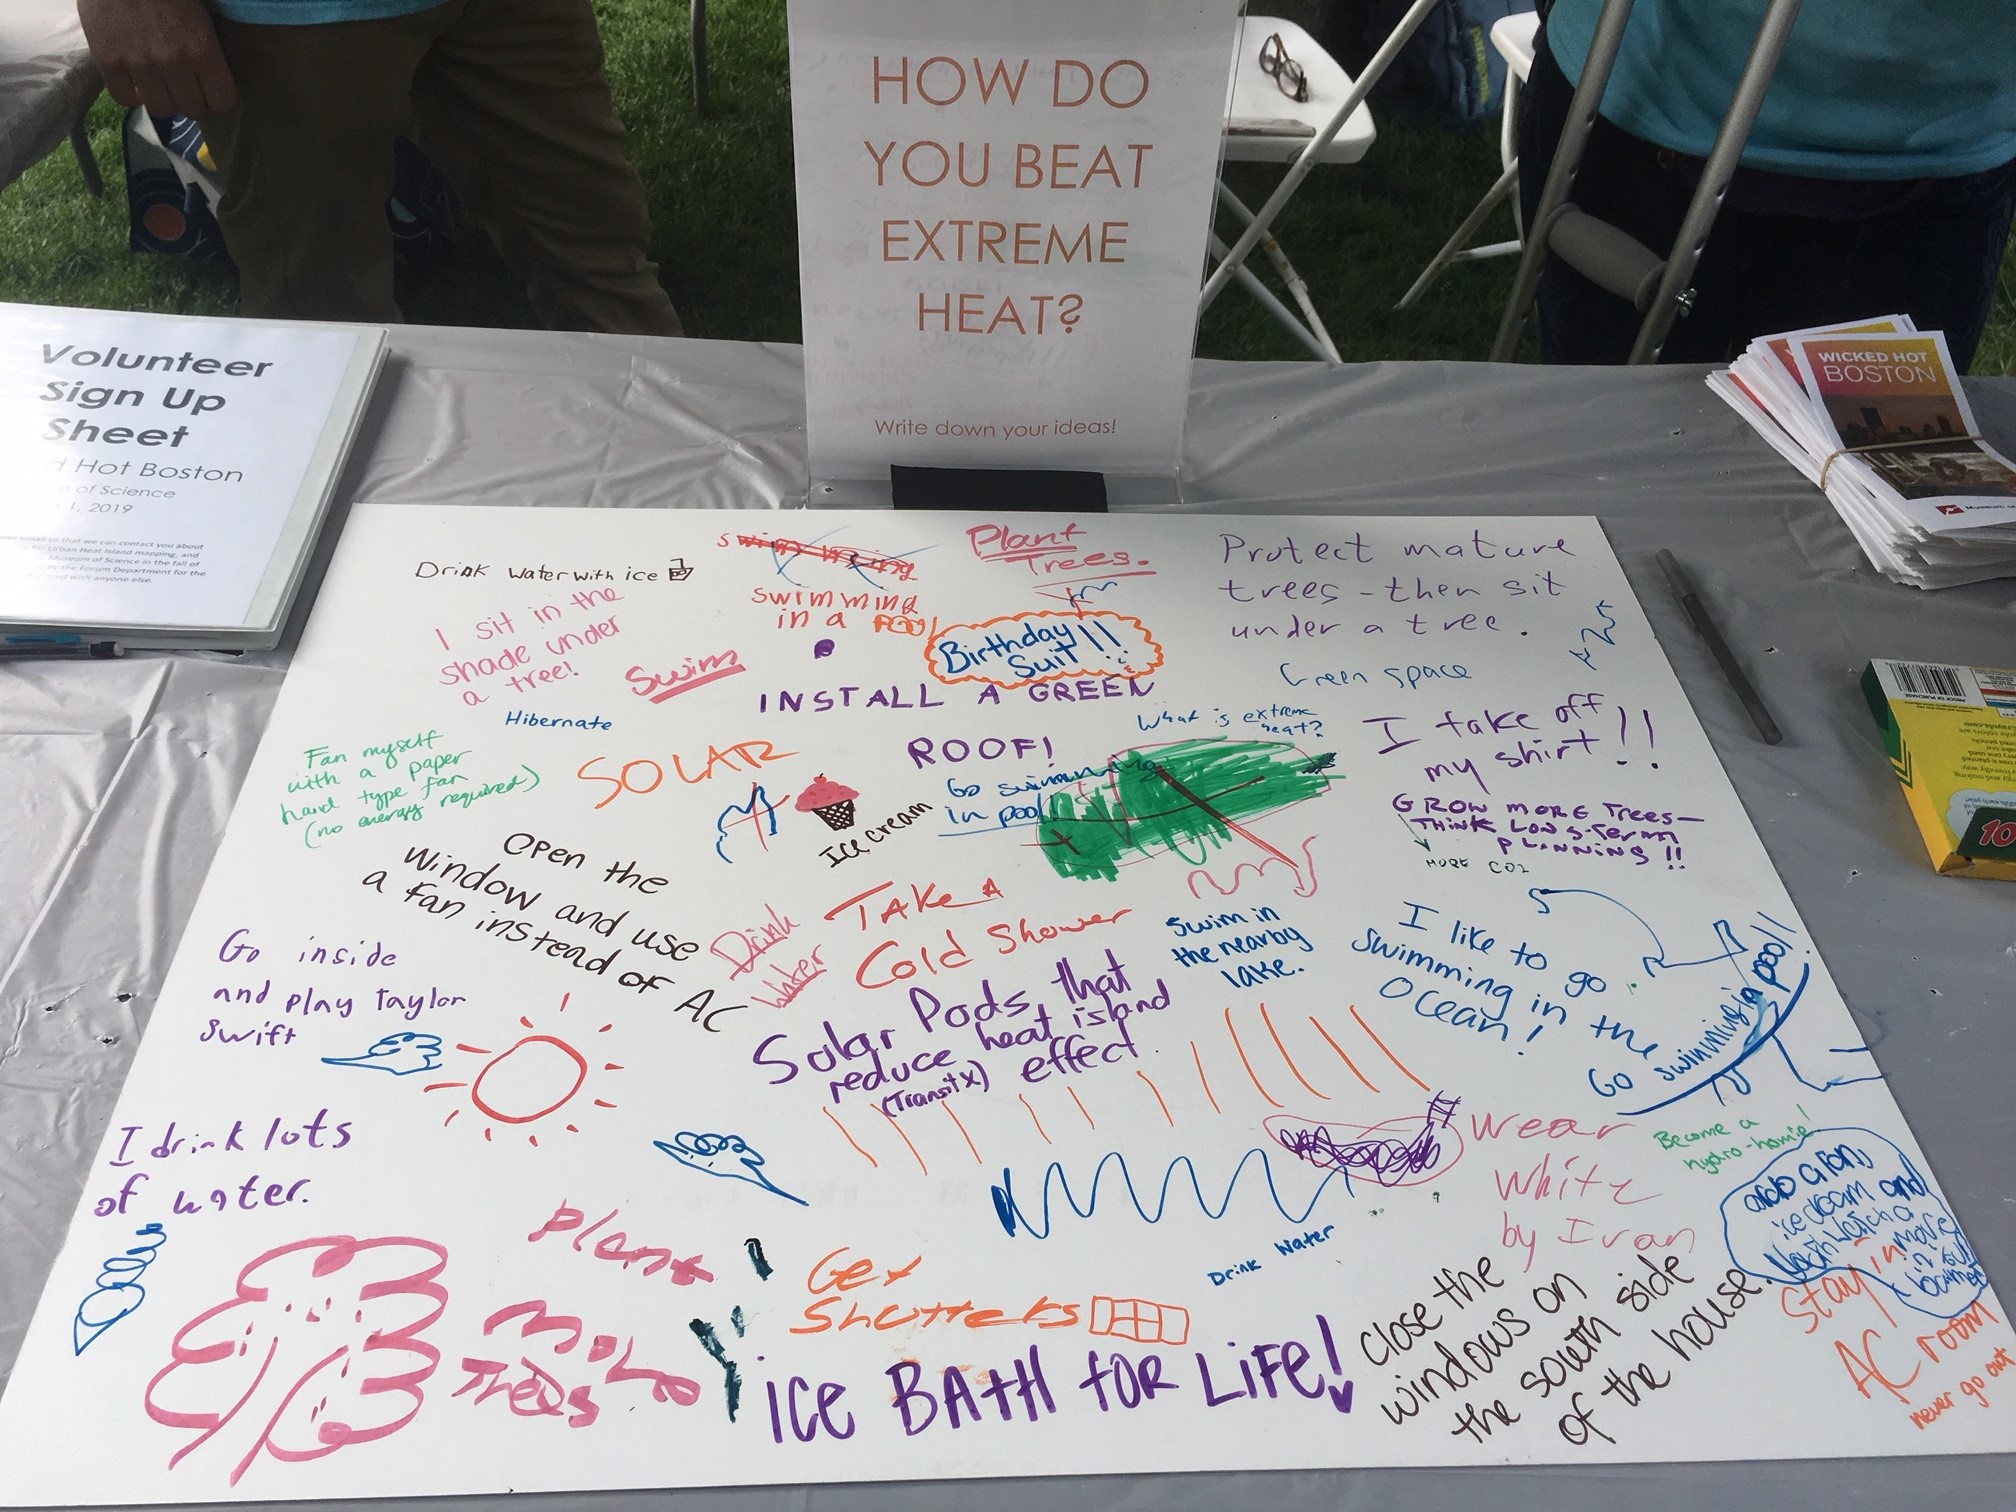 HOW DO
YOU BEAT
EXTREME
HEAT?
Write down your ideas!
Volunteer
Sign Up
Sheet
d Hot Boston
of Science
1, 2019
email so that we can contact you about
for Urban Heat Island mapping, and
Museum of Science in the fall of
by the Forum Department for the
with anyone else.
WICKED HOT
BOSTON
Drink Water with ice
swimming
swimming
in a
Plant
Trees.
Protect mature
trees - then sit
under a tree.
I sit in the
shade under
a tree!
Swim
Birthday
Suit!!
Green space
INSTALL A GREEN
ROOF!
Hibernate
What is extreme
heat?
I take off
my shirt!!
Fan myself
with a paper
hand type fan
(no energy required)
SOLAR
Go swimming
in pool!
Ice cream
GROW MORE TREES-
THINK LONG-TERM
PLANNING!!
MORE CO2
Open the
window and use
a fan instead of AC
Drink
Water
TAKE A
Cold Shower
Swim in
the nearby
lake.
I like to go
swimming in the
Ocean!
Go inside
and play Taylor
Swift
Solar Pods, that
reduce heat island
(TransitX) effect.
Go swimming in a pool!
I drink lots
of water.
Wear
White
by Ivan
Become a
hydro-homie!
and a fan,
ice cream and
watch a
movie
in
Plant
More
Trees
Get
Shutters
Drink Water
Close the
windows on
the south side
of the house.
Stay in
AC room
never go out
ice BATH FOR LiFe!
10